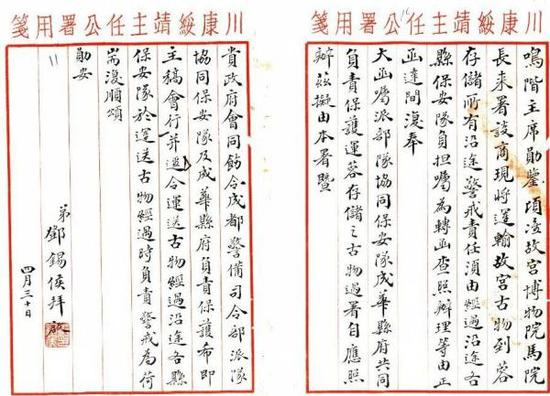 川康綏靖主任公署用箋
鳴階主席勛鑒頃准故宮博物院馬院
長來署談商現將運輸故宮古物到蓉
存儲所有沿途警戒責任須由經過沿途各
縣保安隊負担囑為轉函查照辦理等由正
函達間復奉
大函囑派部隊協同保安隊成華縣府共同
負責保護運蓉存儲之古物過署自應照
辦茲擬由本署暨
川康綏靖主任公署用箋
貴政府會同飭令成都警備司令部派隊
協同保安隊及成華縣府負責保護希即
主稿會行并令運送古物經過沿途各縣
保安隊於運送古物經過時負責警戒為荷
耑復順頌
勛安
弟鄧錫侯拜啟
四月三十日